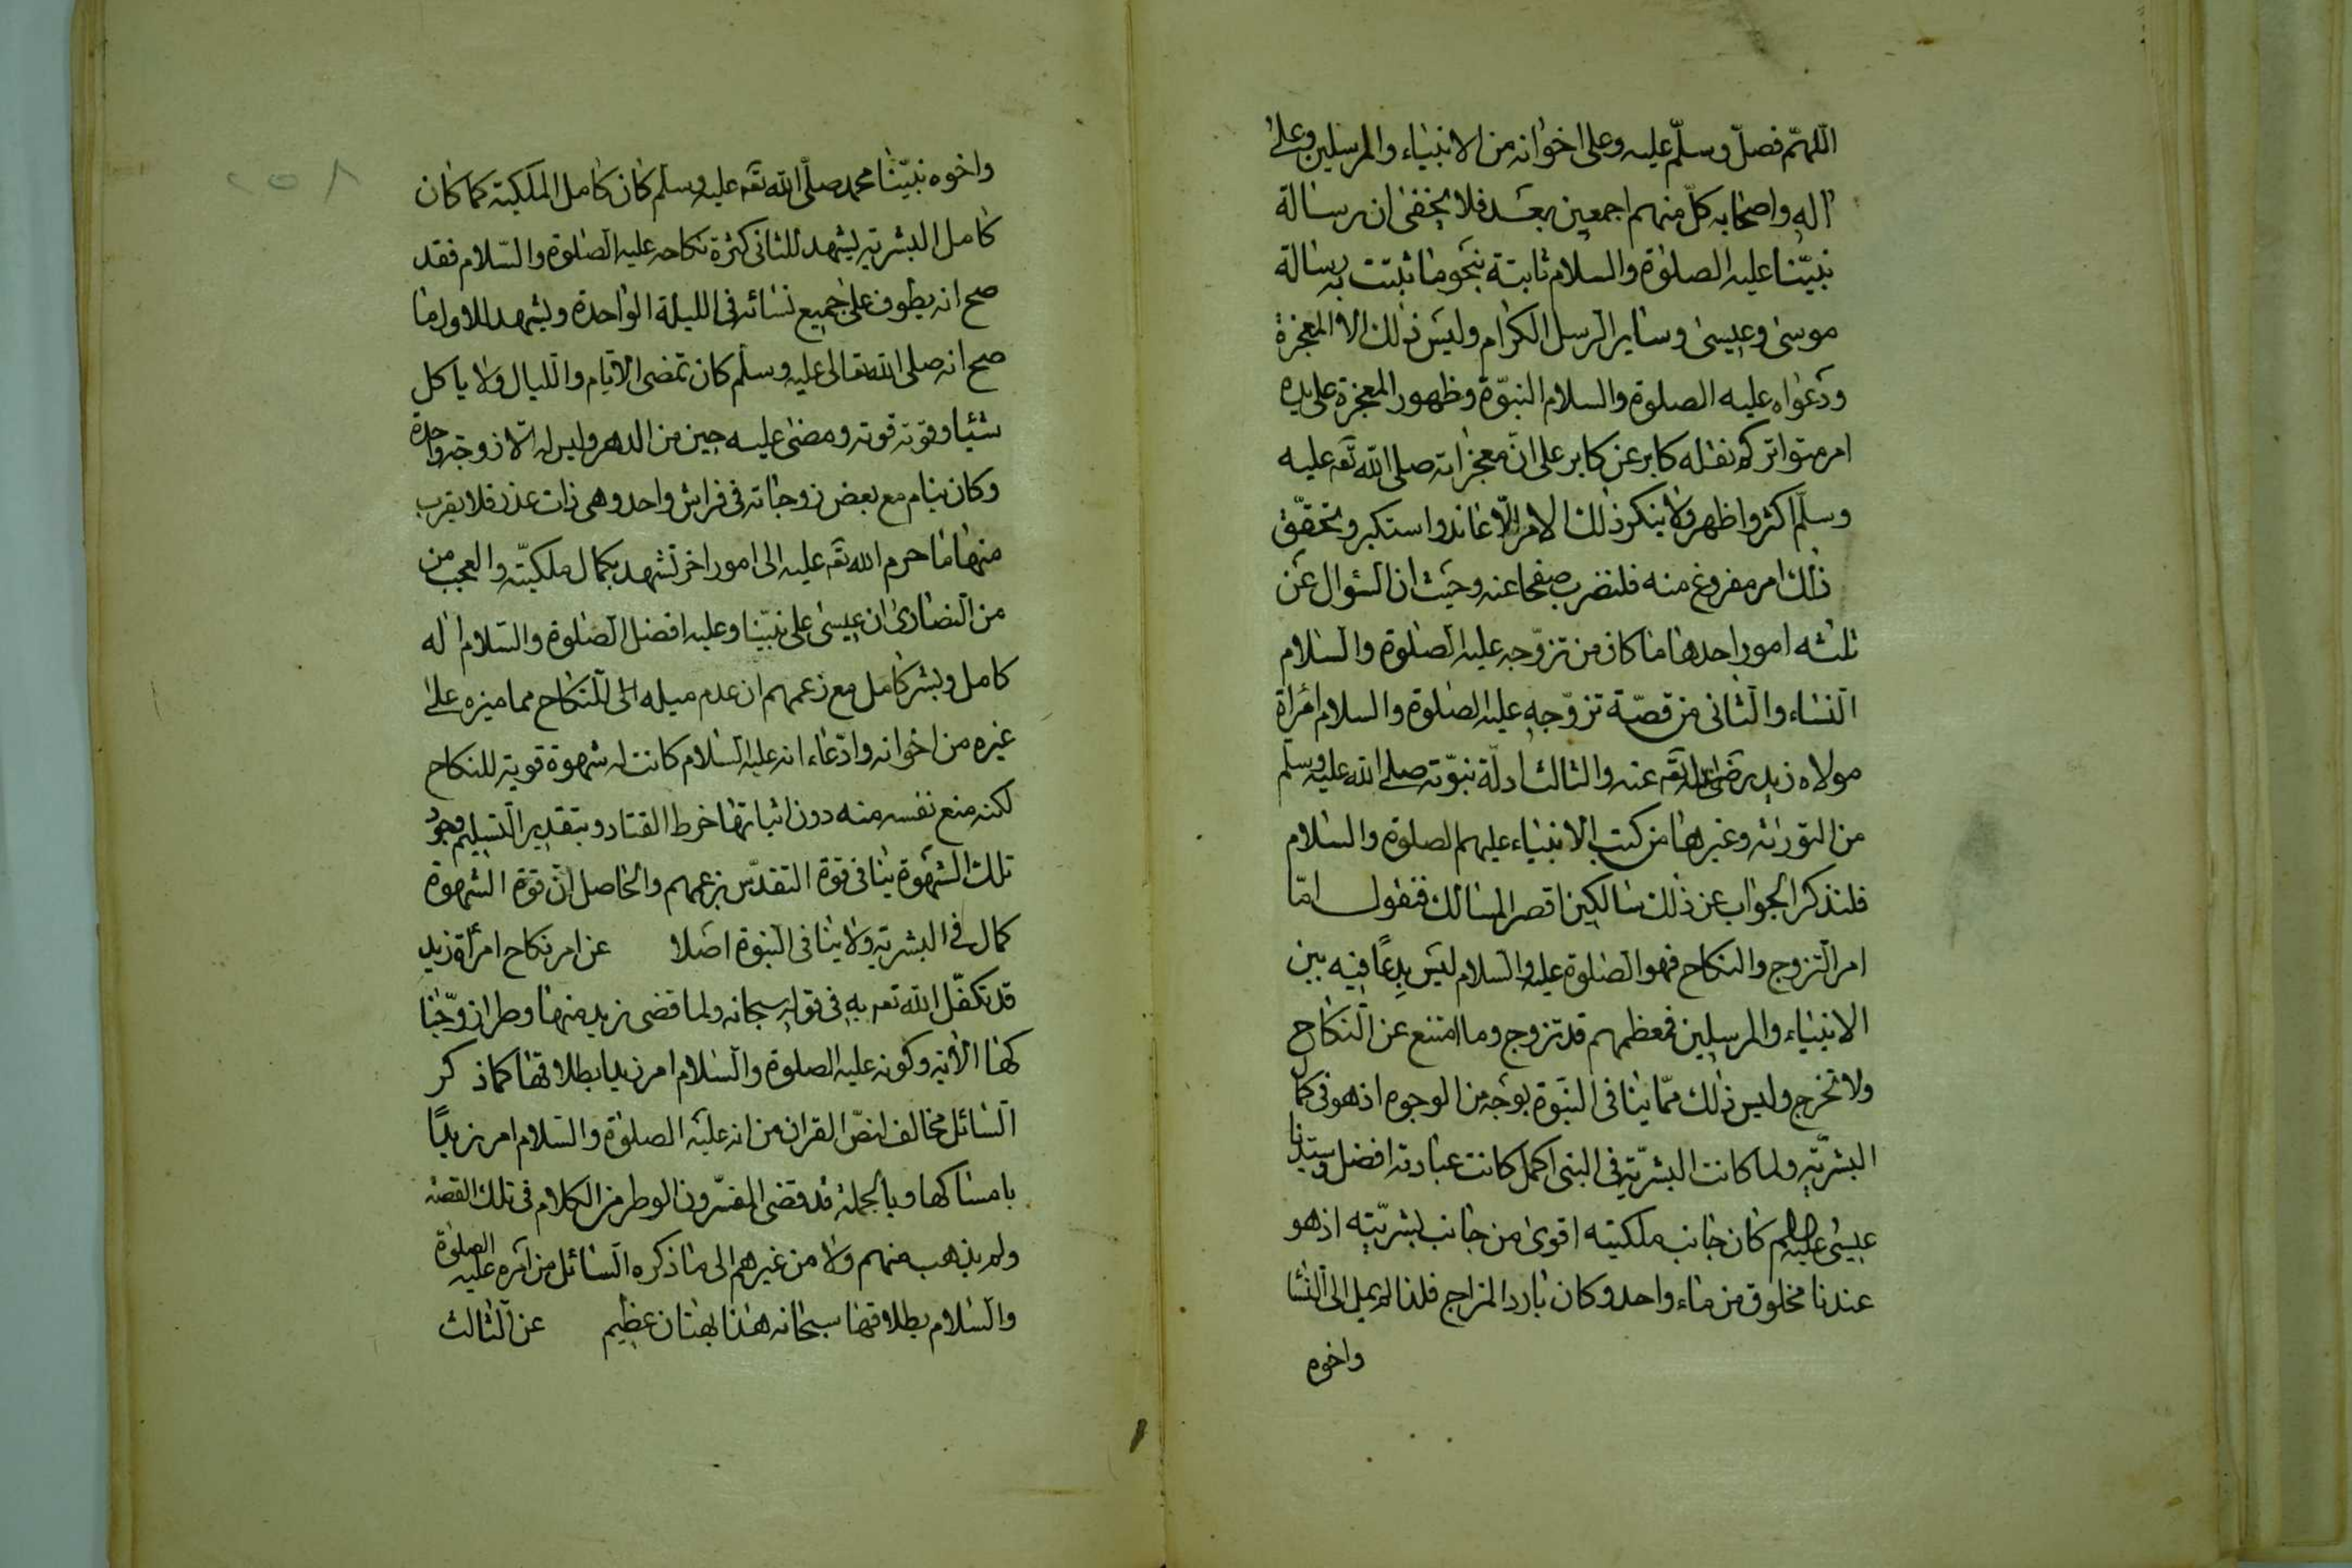 اللهمّ فصلّ وسلّم عليه وعلى اخوانه من الانبياء والمرسلين وعلى
اله واصحابه كلّ منهم اجمعين بعد فلا يخفى ان رسالة
نبيّنا عليه الصلوة والسلام ثابتة بنحو ما ثبتت به رسالة
موسى وعيسى وساير الرسل الكرام وليس ذلك الا المعجزة
ودعواه عليه الصلوة والسلام النبوّة وظهور المعجزة على يده
امر متواتر نقله كابر عن كابر على انّ معجزاته صلى الله تعه عليه
وسلّم اكثر واظهر ولا ينكر ذلك الامر الّا عاند واستكبر وتحقّق
ذلك امر مفروغ منه فلنضرب صفحا عنه وحيث ان السؤال عن
ثلثه امور احدها ما كان من تزوّجه عليه الصلوة والسلام
النساء والثانى من قصّة تزوّجه عليه الصلوة والسلام امرأة
مولاه زيد رضى الله تعه عنه والثالث ادلّة نبوّته صلى الله عليه وسلم
من التورىٰة وغيرها من كتب الانبياء عليهم الصلوة والسلام
فلنذكر الجواب عن ذلك سالكين اقصر المسالك فنقول امّا
امر التزوج والنكاح فهو الصلوة عليه والسلام ليس بدعًا فيه بين
الانبياء والمرسلين فمعظمهم قد تزوج وما امتنع عن النكاح
ولا تخرج وليس ذلك ممّا ينافى النبوة بوجه من الوجوه اذ هو فى كمال
البشريّة ولما كانت البشريّة فى النبى اكمل كانت عبادته افضل وسيدنا
عيسى عليه السلام كان جانب ملكيته اقوى من جانب بشريّته اذ هو
عندنا مخلوق من ماء واحد وكان بارد المزاج فلذا لم يمل الى النسا
واخوه
واخوه نبيّنا محمد صلّى الله تعه عليه وسلّم كان كامل الملكية كما كان
كامل البشرية يشهد للثانى كثرة نكاحه عليه الصلوة والسّلام فقد
صح انه يطوف على جميع نسائه فى الليلة الواحدة ويشهد للاول ما
صح انه صلى الله تعالى عليه وسلم كان تمضى الايّام والليال ولا ياكل
شيئا وقوّته قوته ومضى عليه حين من الدهر وليس له الّا زوجة واحدة
وكان ينام مع بعض زوجاته فى فراش واحد وهى ذات عذر فلا يقرب
منها ما حرم الله تعه عليه الى امور اخر تشهد بكمال ملكيّته والعجب من
من النصارى ان عيسى على نبيّنا وعليه افضل الصلوة والسلام اله
كامل وبشر كامل مع زعمهم ان عدم ميله الى النكاح مما ميزه على
غيره من اخوانه وادّعاء انه عليه السلام كانت له شهوة قوية للنكاح
لكنه منع نفسه منه دون اثباتها خرط القتاد وبتقدير التسليم وجود
تلك الشهوة ينافى قوة التقدّس بزعمهم والحاصل انّ قوّة الشهوة
كمال فى البشرية ولا ينافى النبوة اصلا عن امر نكاح امرأة زيد
قد تكفّل الله تعه به فى قوله سبحانه ولما قضى زيد منها وطرا زوّجنا
كها الأية وكونه عليه الصلوة والسلام امر زيدا بطلاقها كما ذكر
السائل مخالف لنصّ القران من انه عليه الصلوة والسلام امر زيدًا
بامساكها وبالجملة قد قضى المفسّرون الوطر من الكلام فى تلك القصة
ولم يذهب منهم ولا من غيرهم الى ما ذكره السائل من امره عليه الصلوة
والسلام بطلاقها سبحانه هذا بهتان عظيم عن الثالث